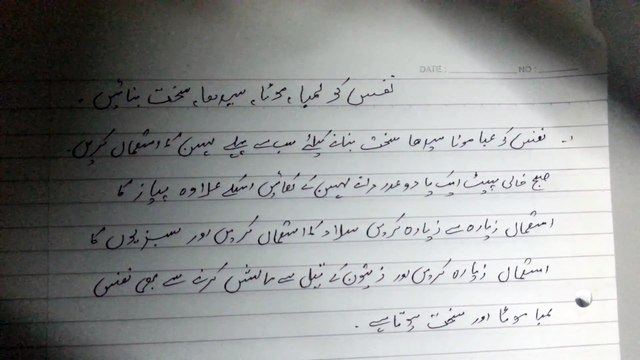 DATE: NO:
نفس کو لمبا، موٹا، سیدھا، سخت بنائیں۔
۱۔ نفس کو لمبا موٹا سیدھا سخت بنانے کیلئے سب سے پہلے لہسن کا استعمال کریں۔
صبح خالی پیٹ ایک یا دو عدد دانے لہسن کے کھائیں اسکے علاوہ پیاز کا
استعمال زیادہ سے زیادہ کریں سلاد کا استعمال کریں اور سبزیوں کا
استعمال زیادہ کریں اور زیتون کے تیل سے مالش کرنے سے بھی نفس
لمبا موٹا اور سخت ہوتا ہے۔